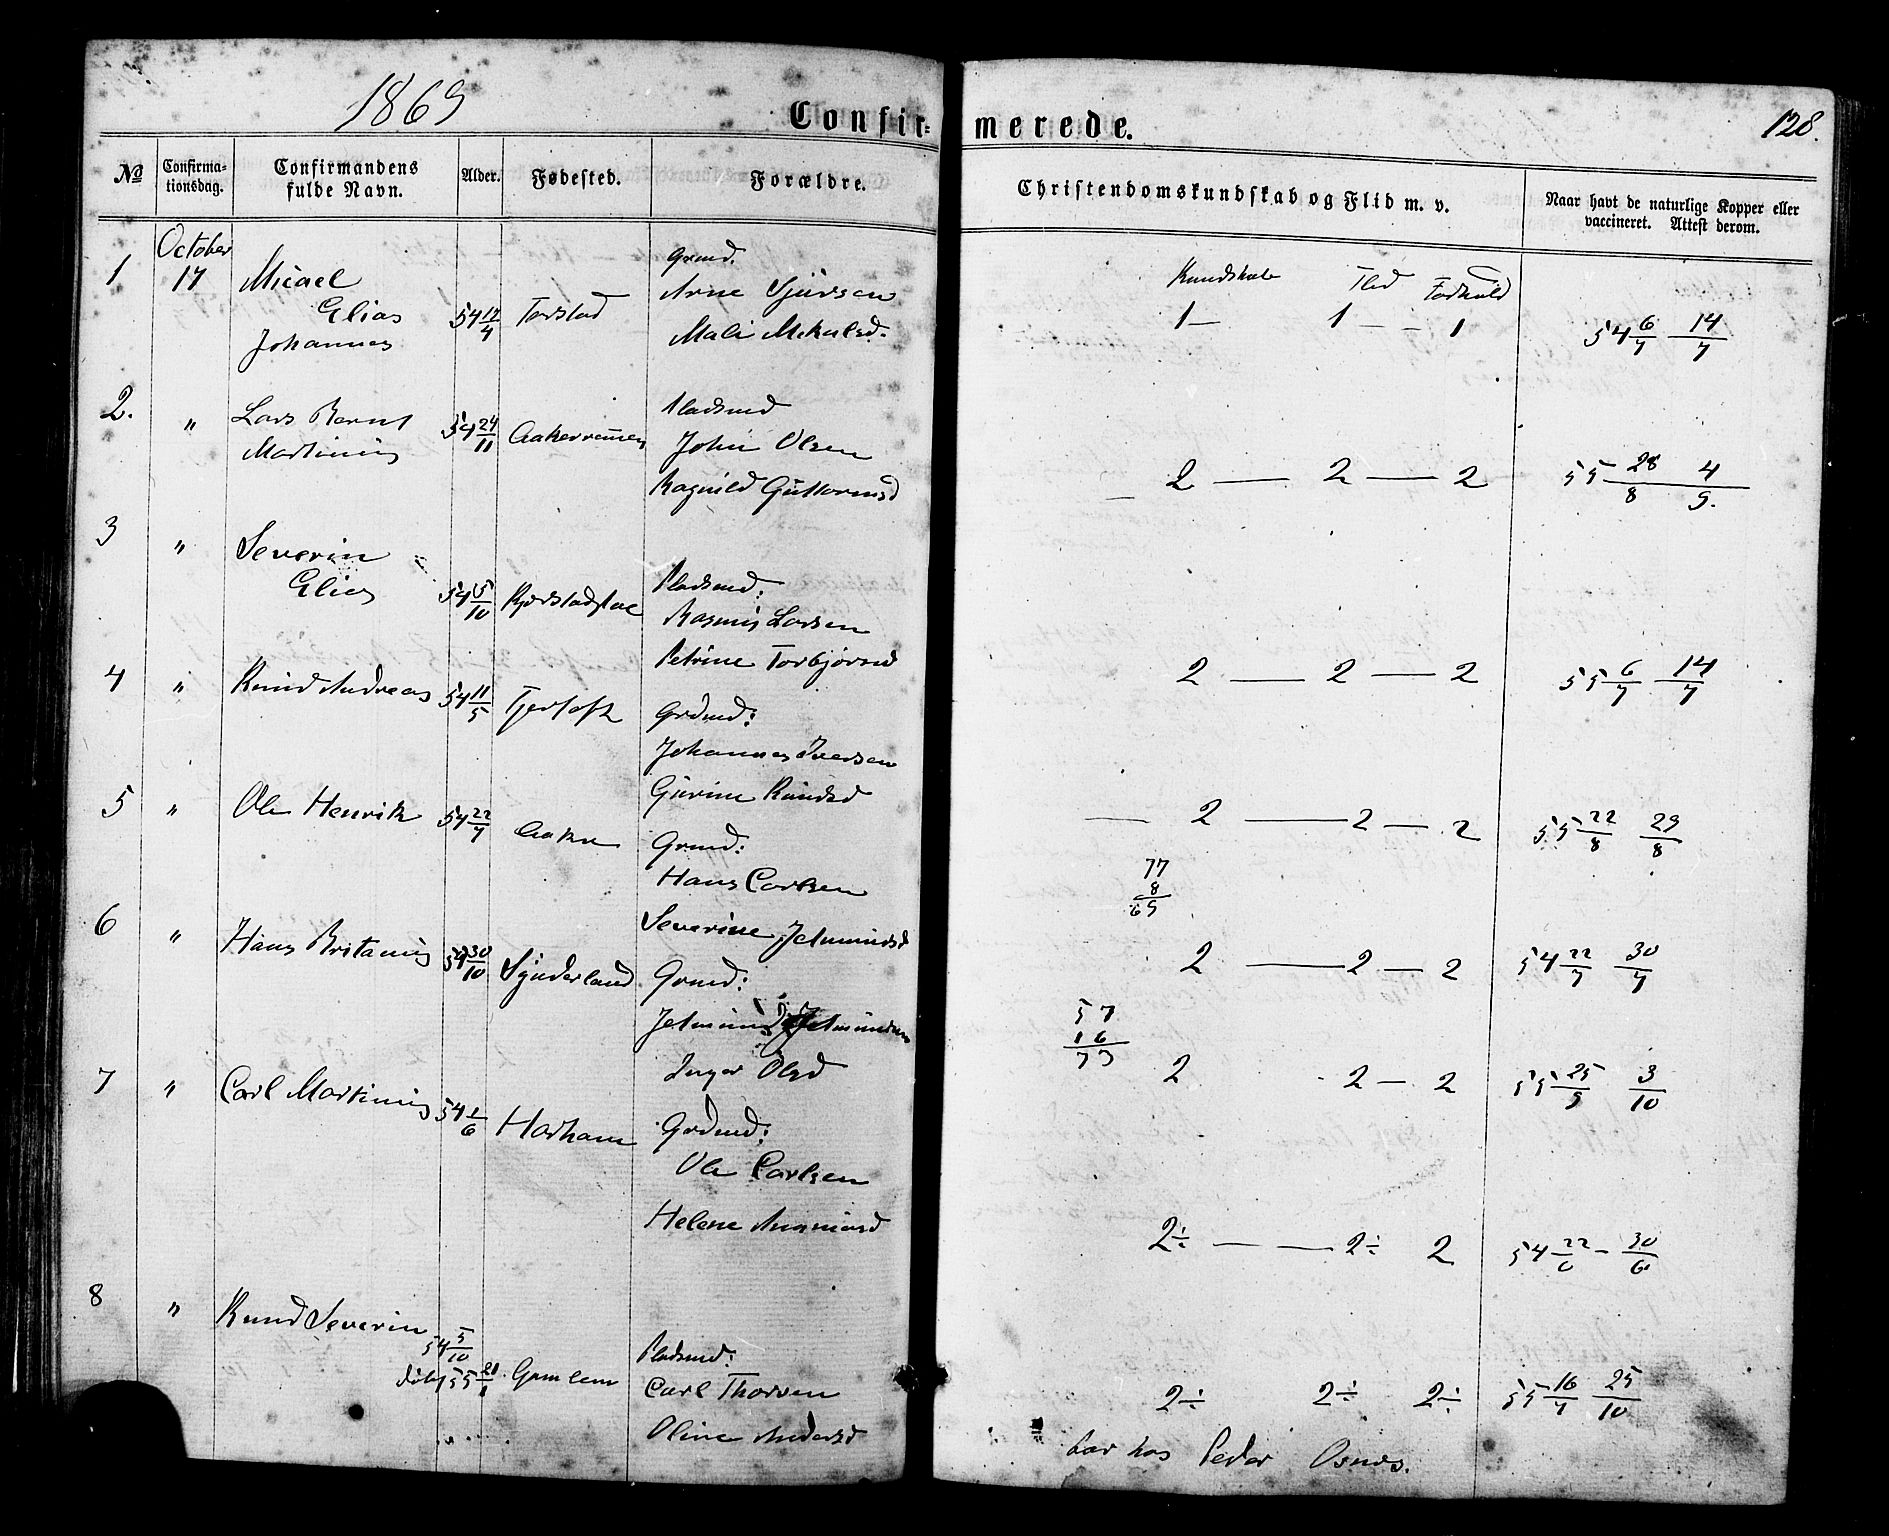 1869
Confir= merede.
128.
No
Confirma-
tionsdag.
Confirmandens
fulde Navn.
Alder.
Fødested.
Forældre.
Christendomskundskab og Flid m. v.
Naar havt de naturlige Kopper eller
vaccineret. Attest derom.
Kundskab Flid Forhold
1 October 17 Micael 54 17/4 Torstad Grmd.
Elias Arne Sjursen
Johannes Mali Mikalsd.
1 — 1 — — 1 54 6/7 14/7
2. " Lars Bernt 54 24/11 Pladsmd
Martinius John Olsen
Ragnild Guttormsd
— 2 — 2 — 2 55 28/8 4/9.
3 " Severin 54 5/10 Pladsmd:
Elias Rasmus Larsen
Petrine Torbjørnsd
2 — 2 — 2 55 6/7 14/7
4 " Knud Andreas 54 11/5 Grdmd:
Johannes Iversen
Gurine Knudsd
— 2 — 2 — 2 55 22/8 29/8
5 " Ole Henrik 54 22/7 Aakre Grmd:
Hans Carlsen
Severine Jetmundsd
77
8
69
2 — 2 — 2 54 22/7 30/7
6 " Hans Britanus 54 30/10 Synderland Grmd:
Jetmund Jetmundsen
Inger Olsd
57
16
73
2 2 — 2 55 25/9 3/10
7 " Carl Martinius 54 1/6 Harham Grdmd:
Ole Carlsen
Helene
2÷ — — 2÷ 2 54 22/6 — 30/6
8 " Knud Severin 54 5/10 Gamlem Pladsmd:
døbt 55 21/1 Carl Thorsen
Oline Andersd
2÷ 2÷ 2÷ 55 16/7 25/10
har hos Peder Osnes.